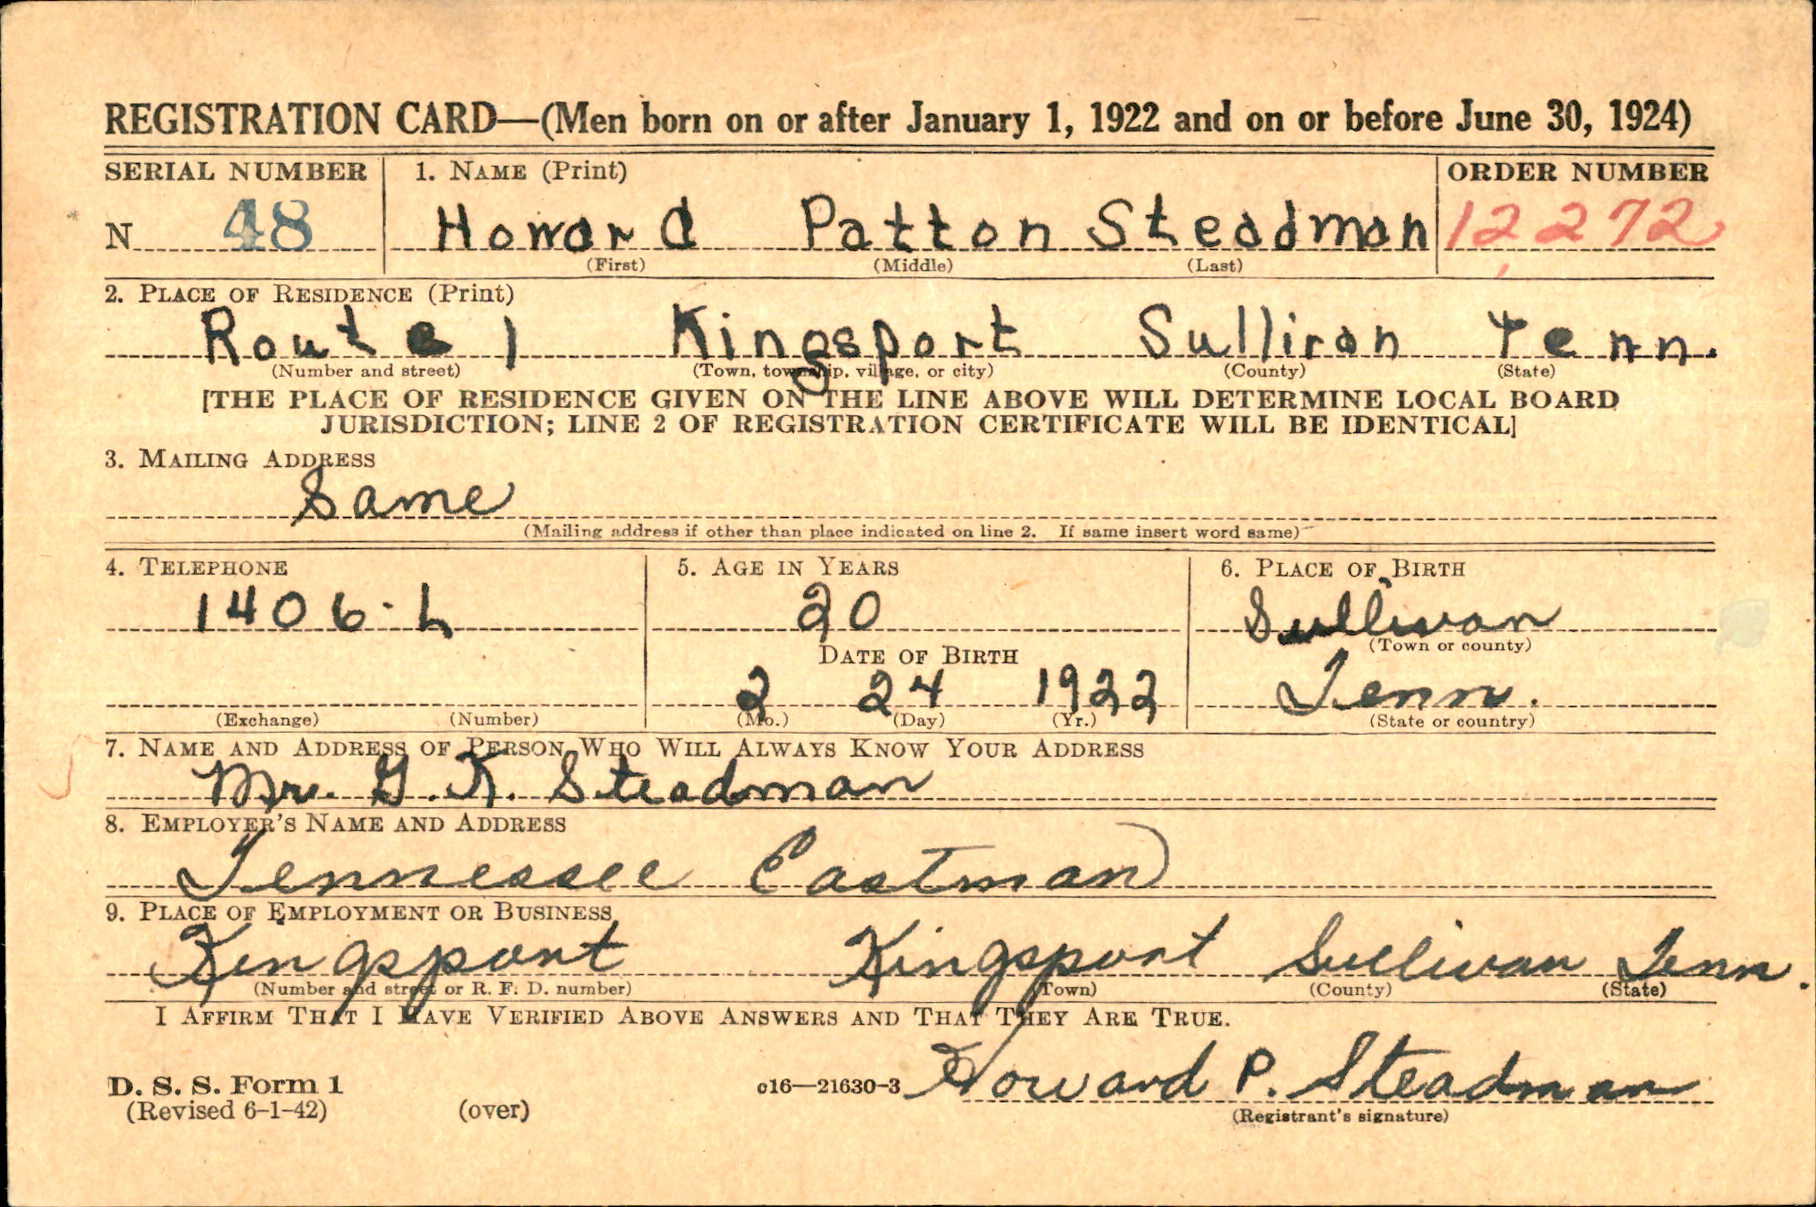 REGISTRATION CARD—(Men born on or after January 1, 1922 and on or before June 30, 1924)
SERIAL NUMBER 1. NAME (Print) ORDER NUMBER
N 48 Howard Patton Steadman 12,272
(First) (Middle) (Last)
2. PLACE OF RESIDENCE (Print)
Route 1 Kingsport Sullivan Tenn.
(Number and street) (Town, township, village, or city) (County) (State)
[THE PLACE OF RESIDENCE GIVEN ON THE LINE ABOVE WILL DETERMINE LOCAL BOARD
JURISDICTION; LINE 2 OF REGISTRATION CERTIFICATE WILL BE IDENTICAL]
3. MAILING ADDRESS
Same
(Mailing address if other than place indicated on line 2. If same insert word same)
4. TELEPHONE 5. AGE IN YEARS 6. PLACE OF BIRTH
1406-L 20 Sullivan
(Town or county)
DATE OF BIRTH
2 24 1922 Tenn.
(Exchange) (Number) (Mo.) (Day) (Yr.) (State or country)
7. NAME AND ADDRESS OF PERSON WHO WILL ALWAYS KNOW YOUR ADDRESS
Mr. G. K. Steadman
8. EMPLOYER'S NAME AND ADDRESS
Tennessee Eastman
9. PLACE OF EMPLOYMENT OR BUSINESS
Kingsport Kingsport Sullivan Tenn.
(Number and street or R. F. D. number) (Town) (County) (State)
I AFFIRM THAT I HAVE VERIFIED ABOVE ANSWERS AND THAT THEY ARE TRUE.
D. S. S. Form 1 c16—21630-3 Howard P. Steadman
(Revised 6-1-42) (over) (Registrant's signature)